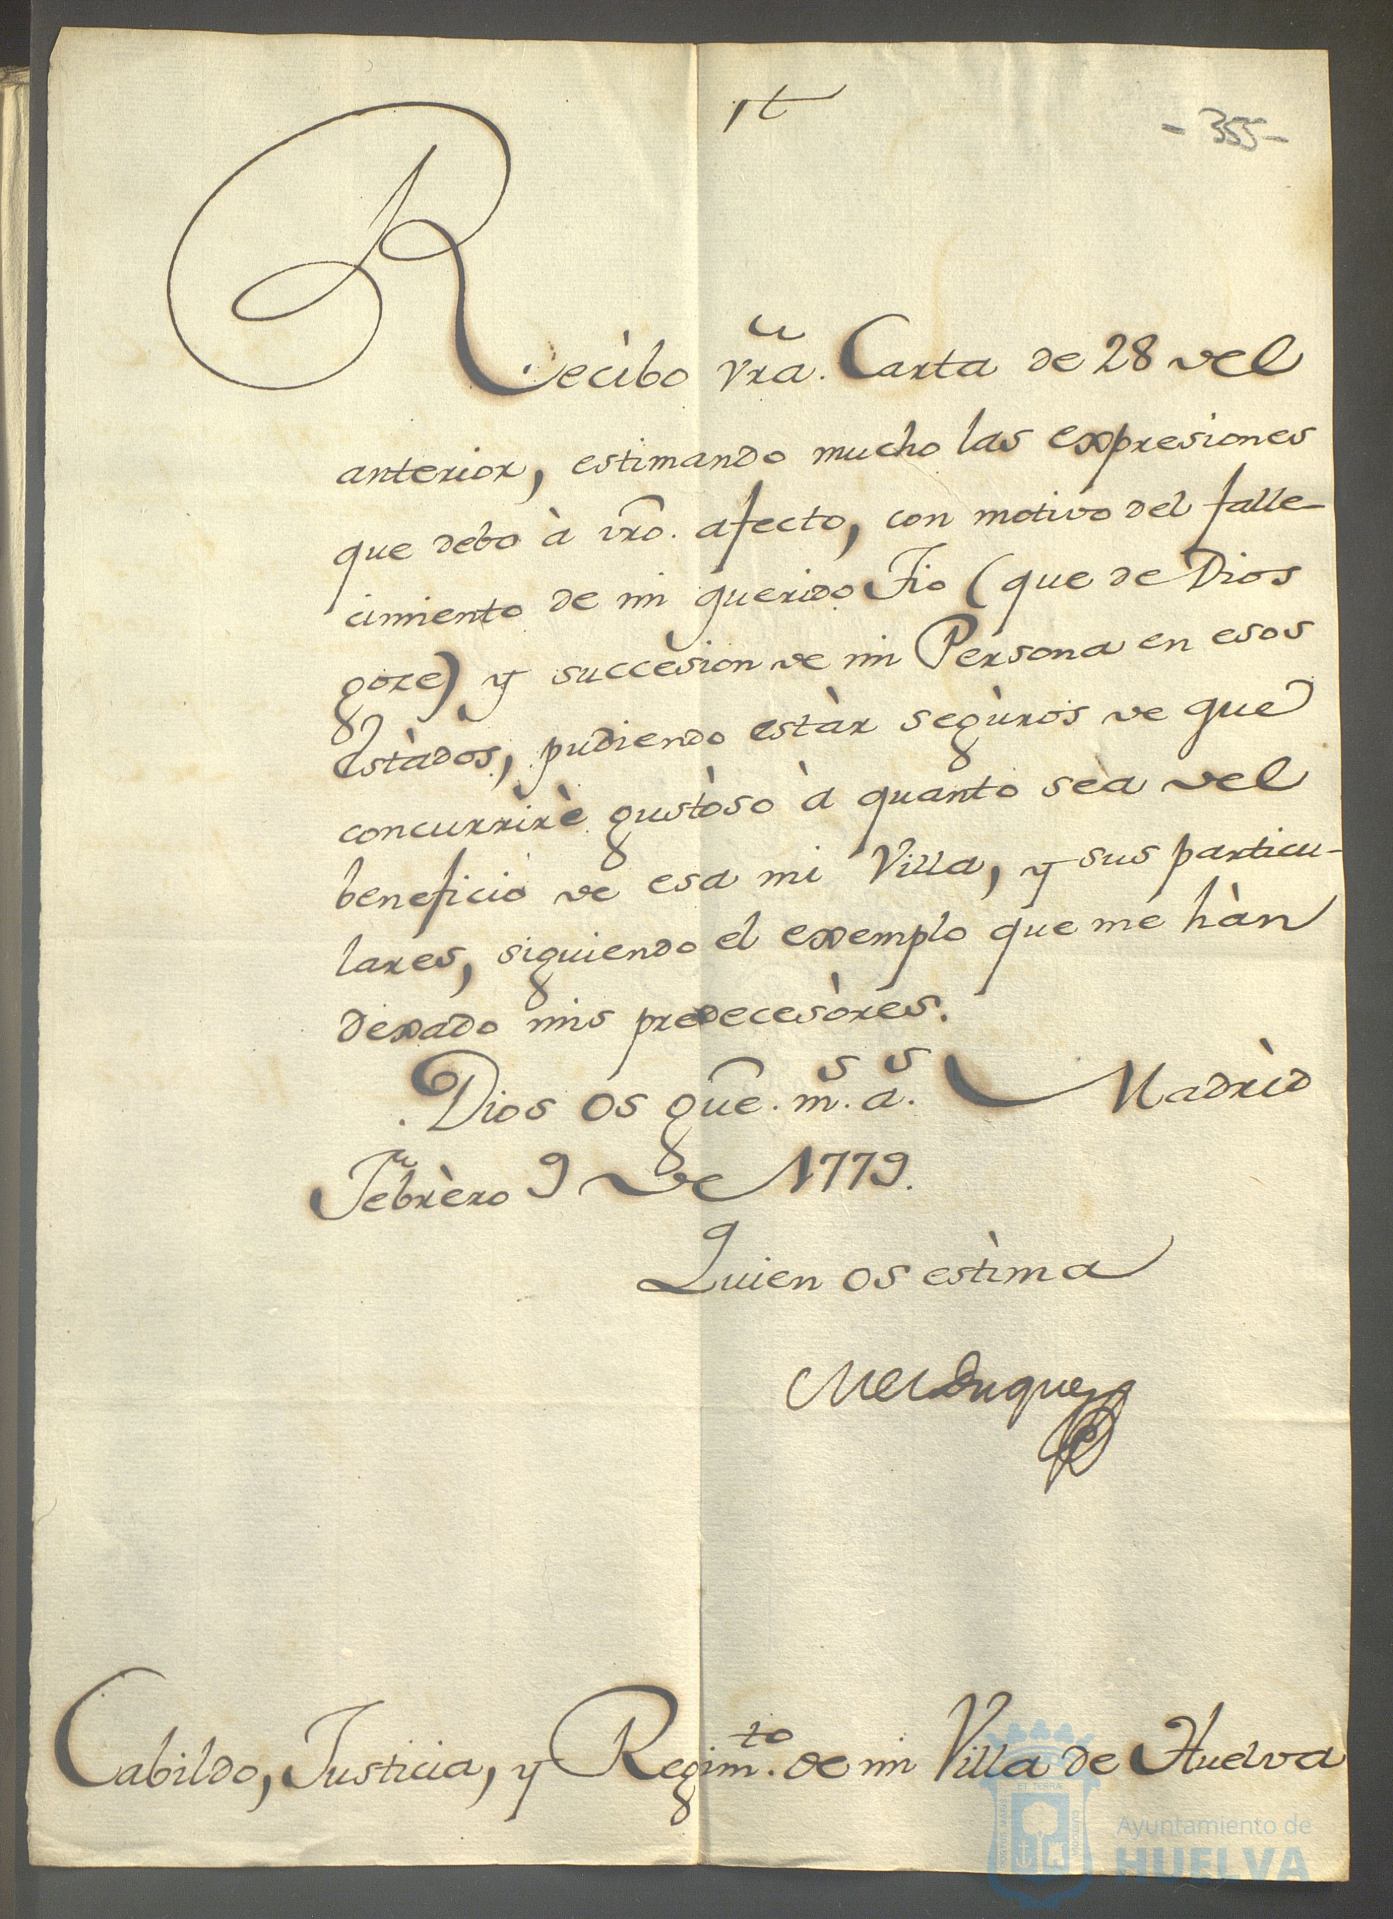 - 355 -
Recibo vr̃a. Carta de 28 del
anterior, estimando mucho las expresiones
que debo à vr̃o. afecto, con motivo del falle-
cimiento de mi querido Tio (que de Dios
goze) y succesion de mi Persona en esos
Estàdos, pudiendo estàr segùros de que
concurrirè gustòso à quanto sèa del
beneficio de esa mi Villa, y sus particu-
lares, siguiendo el exemplo que me hàn
dexado mis predecesòres.
Dios os gũe. m.s a.s Madrìd
Febrèro 9 de 1779.
Quien os estìma
El Duque
Cabildo, Justicia, y Regim.to de mi Villa de Huelva
Ayuntamiento de
HUELVA